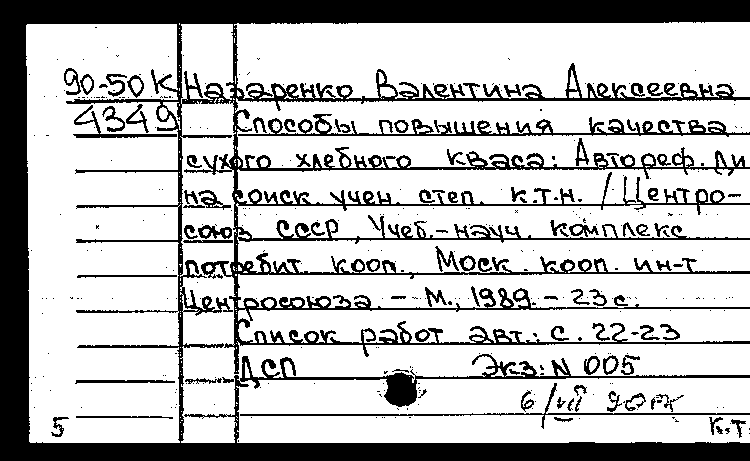 90-50К Назаренко, Валентина Алексеевна
4349 Способы повышения качества
сухого хлебного кваса: Автореф. ди
на соиск. учен. степ. к.т.н. / Центро-
союз СССР, Учеб.-науч. комплекс
потребит. кооп., Моск. кооп. ин-т
Центросоюза. - М., 1989. - 23 с.
Список работ авт.: с. 22-23
ДСП Экз: N 005
6/VII 90
5 К.Т.